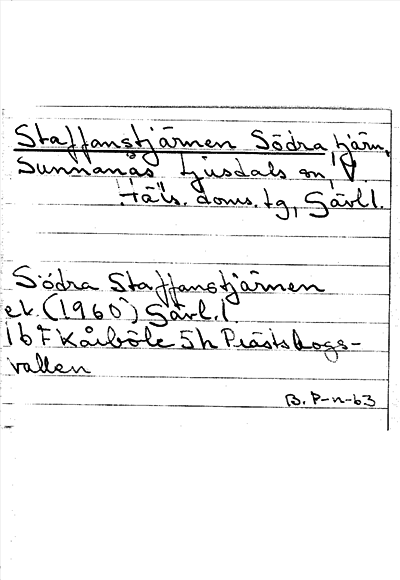 Staffanstjärnen Södra, tjärn,
Sunnanås Ljusdals sn, V.
Häls. doms. tg, Gävl.l.
Södra Staffanstjärnen
ek. (1960) Gävl.l
16 F Kårböle 5h Prästskogs-
vallen
B. P-n-63